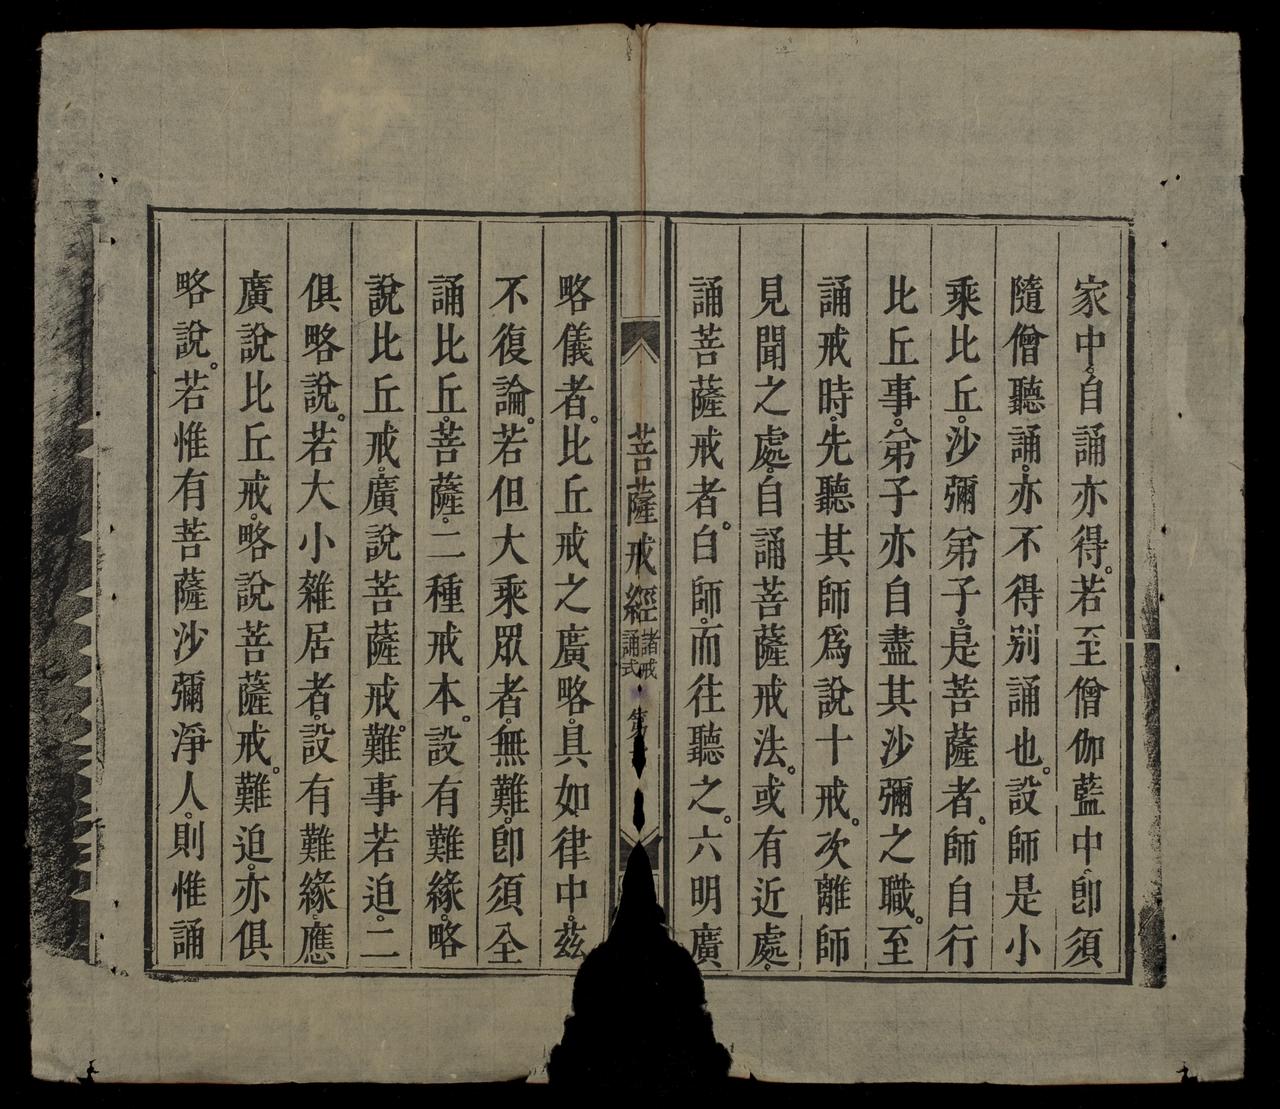 家中。自誦亦得。若至僧伽藍中。卽須
隨僧聽誦。亦不得別誦也。設師是小
乘比丘。沙彌弟子。是菩薩者。師自行
比丘事。弟子亦自盡其沙彌之職。至
誦戒時。先聽其師爲說十戒。次離師
見聞之處。自誦菩薩戒法。或有近處。
誦菩薩戒者。白師。而往聽之。六明廣
菩薩戒經 諸戒誦式
略儀者。比丘戒之廣略。具如律中。茲
不復論。若但大乘眾者。無難。卽須全
誦比丘。菩薩。二種戒本。設有難緣。略
說比丘戒。廣說菩薩戒。難事若迫。二
俱略說。若大小雜居者。設有難緣。應
廣說比丘戒。略說菩薩戒。難迫。亦俱
略說。若惟有菩薩沙彌淨人。則惟誦